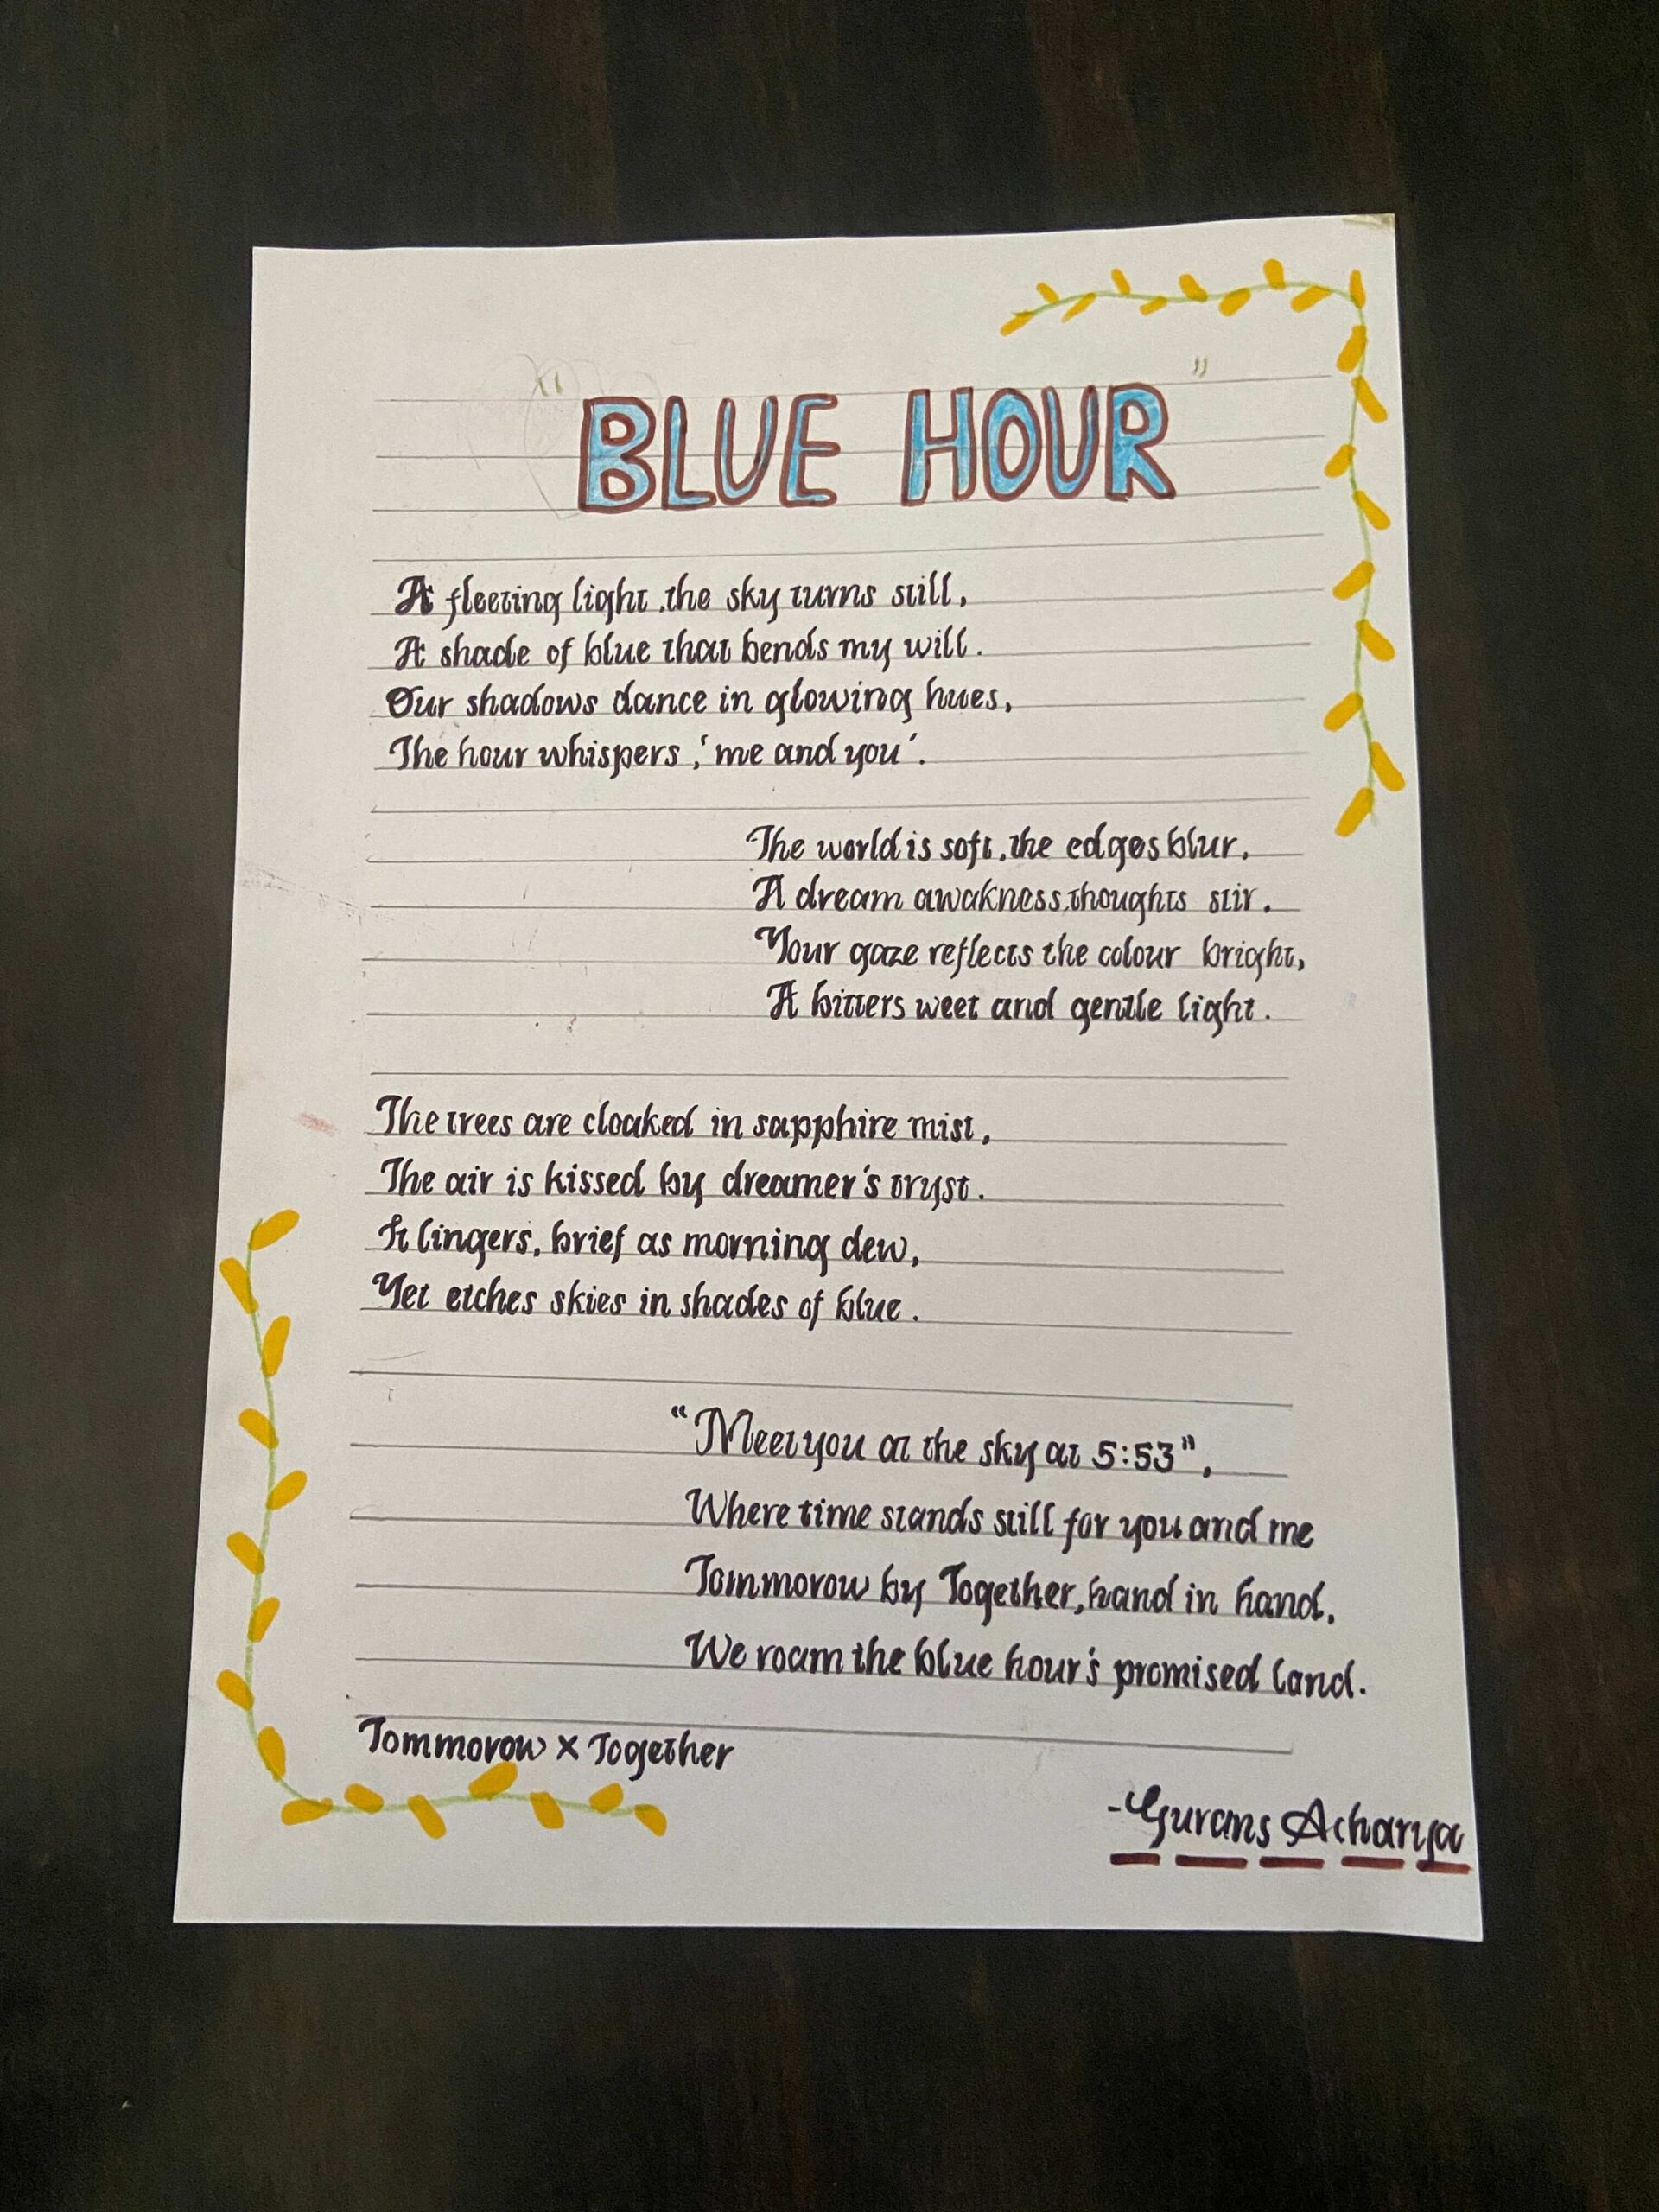 "BLUE HOUR"
A fleeting light, the sky turns still,
A shade of blue that bends my will.
Our shadows dance in glowing hues,
The hour whispers, 'me and you'.
The world is soft, the edges blur,
A dream awakness, thoughts stir.
Your gaze reflects the colour bright,
A bitters weet and gentle light.
The trees are cloaked in sapphire mist,
The air is kissed by dreamer's tryst.
It lingers, brief as morning dew,
Yet etches skies in shades of blue.
"Meet you at the sky at 5:53",
Where time stands still for you and me
Tommorow by Together, hand in hand,
We roam the blue hour's promised land.
Tommorow x Together
-Gurans Acharya